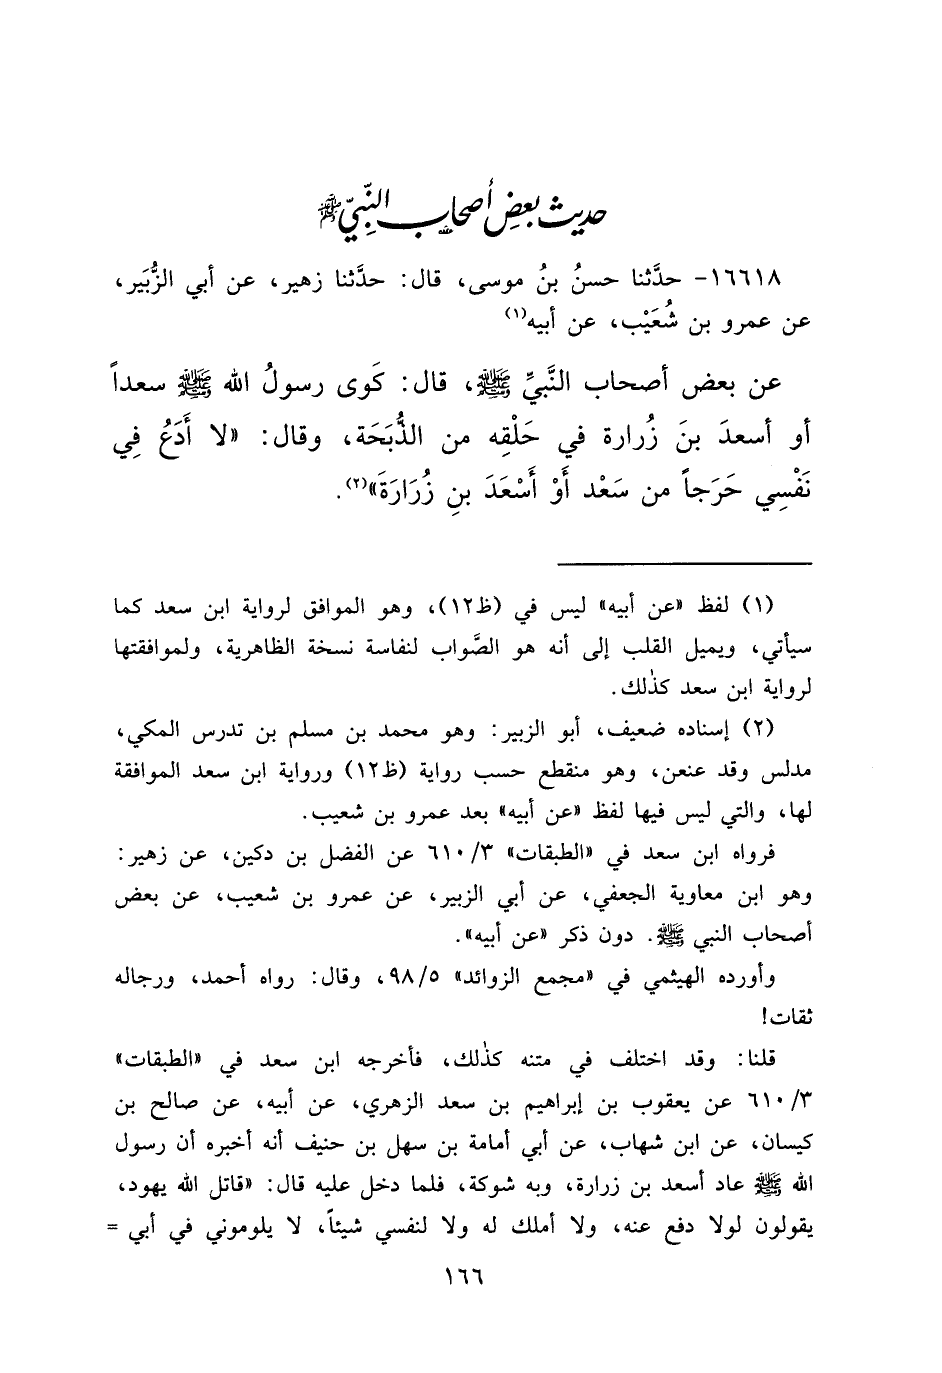 حديث بعض أصحاب النَّبِيِّ ﷺ
١٦٦١٨- حدَّثنا حسنُ بنُ موسى، قال: حدَّثنا زهير، عن أبي الزُّبَير،
عن عمرو بن شُعَيْب، عن أبيه(١)
عن بعض أصحاب النَّبيِّ ﷺ، قال: كَوى رسولُ الله ﷺ سعداً
أو أسعدَ بنَ زُرارة في حَلْقِه من الذُّبَحَة، وقال: «لا أَدَعُ فِي
نَفْسِي حَرَجاً من سَعْد أَوْ أَسْعَدَ بنِ زُرَارَةَ»(٢).
(١) لفظ «عن أبيه» ليس في (ظ١٢)، وهو الموافق لرواية ابن سعد كما
سيأتي، ويميل القلب إلى أنه هو الصَّواب لنفاسة نسخة الظاهرية، ولموافقتها
لرواية ابن سعد كذٰلك.
(٢) إسناده ضعيف، أبو الزبير: وهو محمد بن مسلم بن تدرس المكي،
مدلس وقد عنعن، وهو منقطع حسب رواية (ظ١٢) ورواية ابن سعد الموافقة
لها، والتي ليس فيها لفظ «عن أبيه» بعد عمرو بن شعيب.
فرواه ابن سعد في «الطبقات» ٦١٠/٣ عن الفضل بن دكين، عن زهير:
وهو ابن معاوية الجعفي، عن أبي الزبير، عن عمرو بن شعيب، عن بعض
أصحاب النبي ﷺ. دون ذكر «عن أبيه».
وأورده الهيثمي في «مجمع الزوائد» ٩٨/٥، وقال: رواه أحمد، ورجاله
ثقات!
قلنا: وقد اختلف في متنه كذٰلك، فأخرجه ابن سعد في «الطبقات»
٦١٠/٣ عن يعقوب بن إبراهيم بن سعد الزهري، عن أبيه، عن صالح بن
كيسان، عن ابن شهاب، عن أبي أمامة بن سهل بن حنيف أنه أخبره أن رسول
الله ﷺ عاد أسعد بن زرارة، وبه شوكة، فلما دخل عليه قال: «قاتل الله يهود،
يقولون لولا دفع عنه، ولا أملك له ولا لنفسي شيئاً، لا يلوموني في أبي =
١٦٦